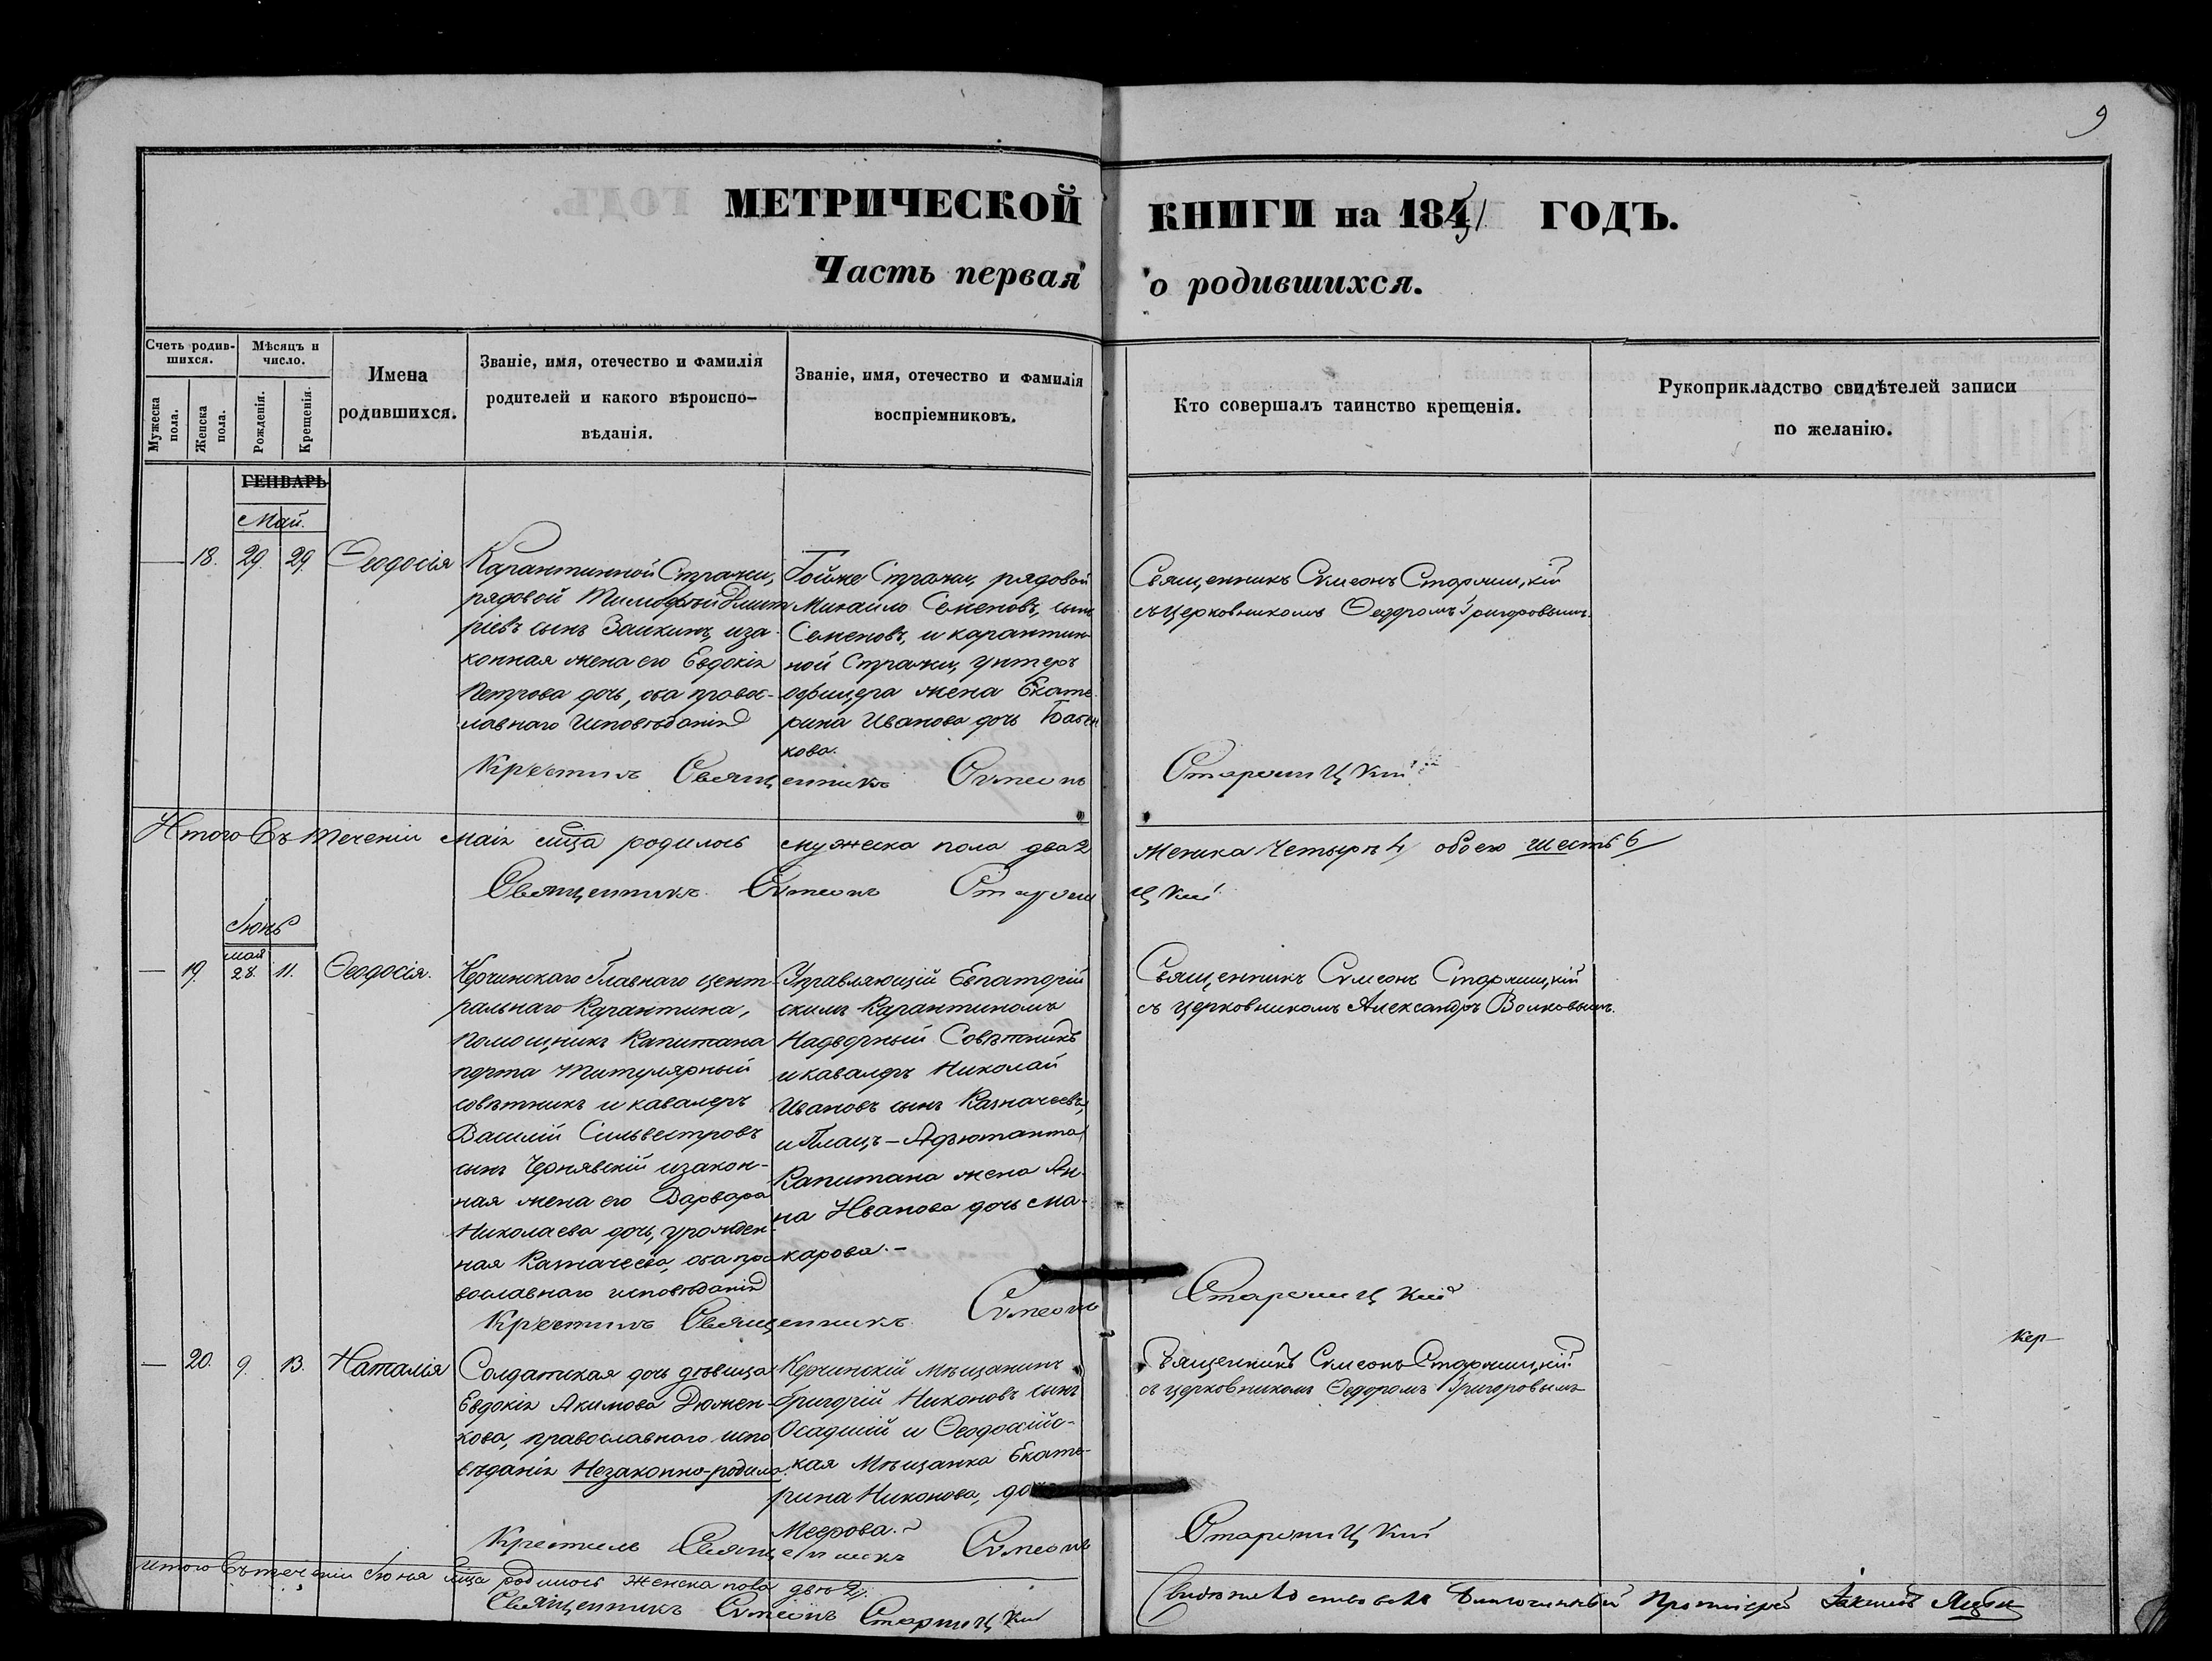 9
МЕТРИЧЕСКОЙ КНИГИ на 1851 ГОДЪ.
Часть первая о родившихся.
Счетъ родив-
шихся.
Мужеска
пола.
Женска
пола.
Мѣсяцъ и
число.
Рожденія.
Крещенія.
Имена
родившихся.
Званіе, имя, отечество и фамилія
родителей и какого вѣроиспо-
вѣданія.
Званіе, имя, отечество и фамилія
воспріемниковъ.
Кто совершалъ таинство крещенія.
Рукоприкладство свидѣтелей записи
по желанію.
ГЕНВАРЬ
Май.
— 18. 29. 29. Ѳеодосія
Карантинной Стражи,
рядовой Тимофѣй Дмит
ріевъ сынъ Заикинъ, иза-
конная жена его Евдокія
Петрова дочь, оба правос-
лавнаго исповѣданія
Тойже Стражи, рядовой
Михаило Семеновъ, сынъ
Семеновъ, и карантин-
ной Стражи, унтеръ
офицера жена Екате-
рина Иванова дочь Бабен
кова.
Священникъ Сѵмеонъ Старицкій
съ церковникомъ Ѳедоромъ Григоровымъ.
Крестилъ Священникъ Сѵмеонъ Старицкій
Итого въ теченіи маія мца родилось мужеска пола два 2 женска четыре 4, обоего шесть 6
Священникъ Сѵмеонъ Старицкій
Іюнь
— 19. мая 28. 11. Ѳеодосія.
Керчинскаго Главнаго цент
ральнаго Карантина,
Помощникъ Капитана
порта Титулярный
совѣтникъ и кавалеръ
Василій Сильвестровъ
сынъ Чернявскій изакон-
ная жена его Варвара
Николаева дочь, урожден-
ная Казначеева, оба пра-
вославнаго исповѣданія
Управляющій Евпаторій
скимъ Карантиномъ
Надворный Совѣтникъ
и кавалеръ Николай
Ивановъ сынъ Казначеевъ,
и Плацъ-Адъютанта
Капитана жена Ан-
на Иванова дочь Ма-
карова.-
Священникъ Сѵмеонъ Старицкій
съ церковникомъ Александръ Волковымъ.
Крестилъ Священникъ Сѵмеонъ Старицкій
Кер-
— 20. 9. 13. Наталія
Солдатская дочь дѣвица
Евдокія Акимова Дюжен-
кова, православнаго испо
вѣданія Незаконно-родила.
Керчинскій Мѣщанинъ
Григорій Никоновъ сынъ
Осадшій и Ѳеодосійс-
кая Мѣщанка Екате-
рина Никонова, доч
Меерова.-
Священникъ Сѵмеонъ Старицкій
съ церковникомъ Ѳедоромъ Григоровымъ
Крестилъ Священникъ Сѵмеонъ Старицкій
Итого въ теченіи Іюня мца родилось женска пола двѣ 2.
Священникъ Сѵмеонъ Старицкій
Свидѣтельствовалъ Благочинный Протоіерей